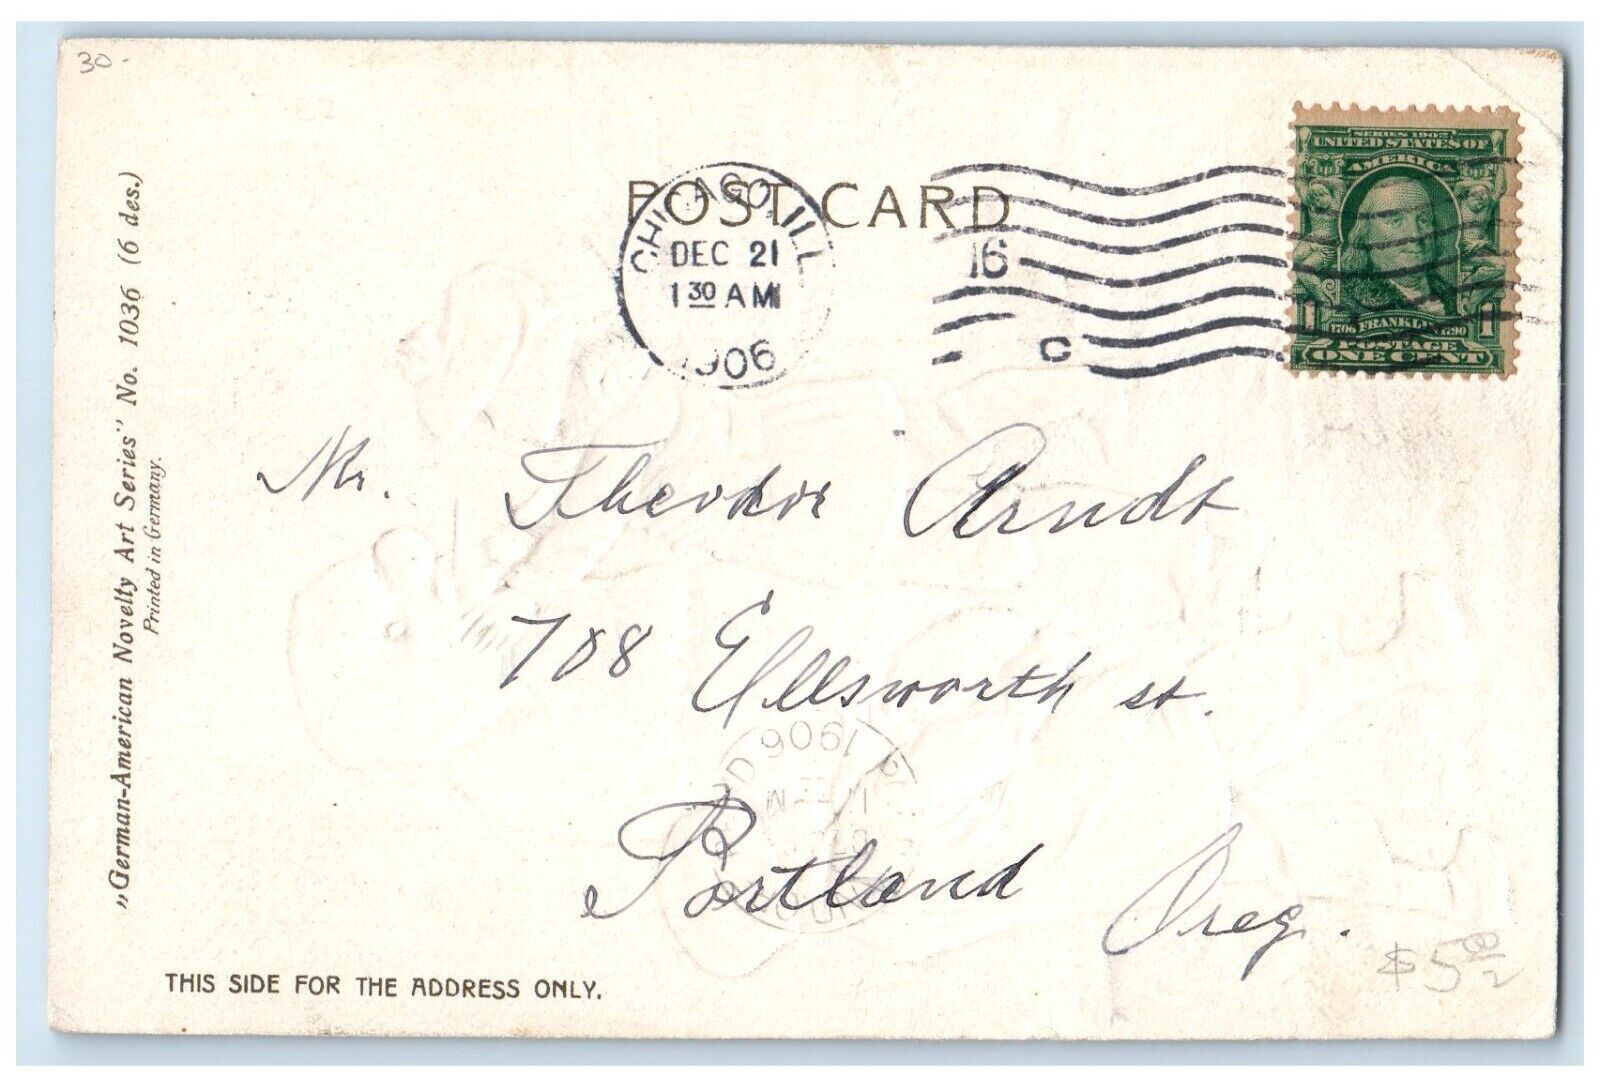 30-
POST CARD
CHICAGO, ILL.
DEC 21
1 30 AM
1906
16
C
SERIES 1902
UNITED STATES OF
AMERICA
1706 FRANKLIN 1790
1 1
POSTAGE
ONE CENT
„German-American Novelty Art Series" No. 1036 (6 des.)
Printed in Germany.
Mr. Theodor Arndt
708 Ellsworth st.
1906
Portland Oreg.
THIS SIDE FOR THE ADDRESS ONLY.